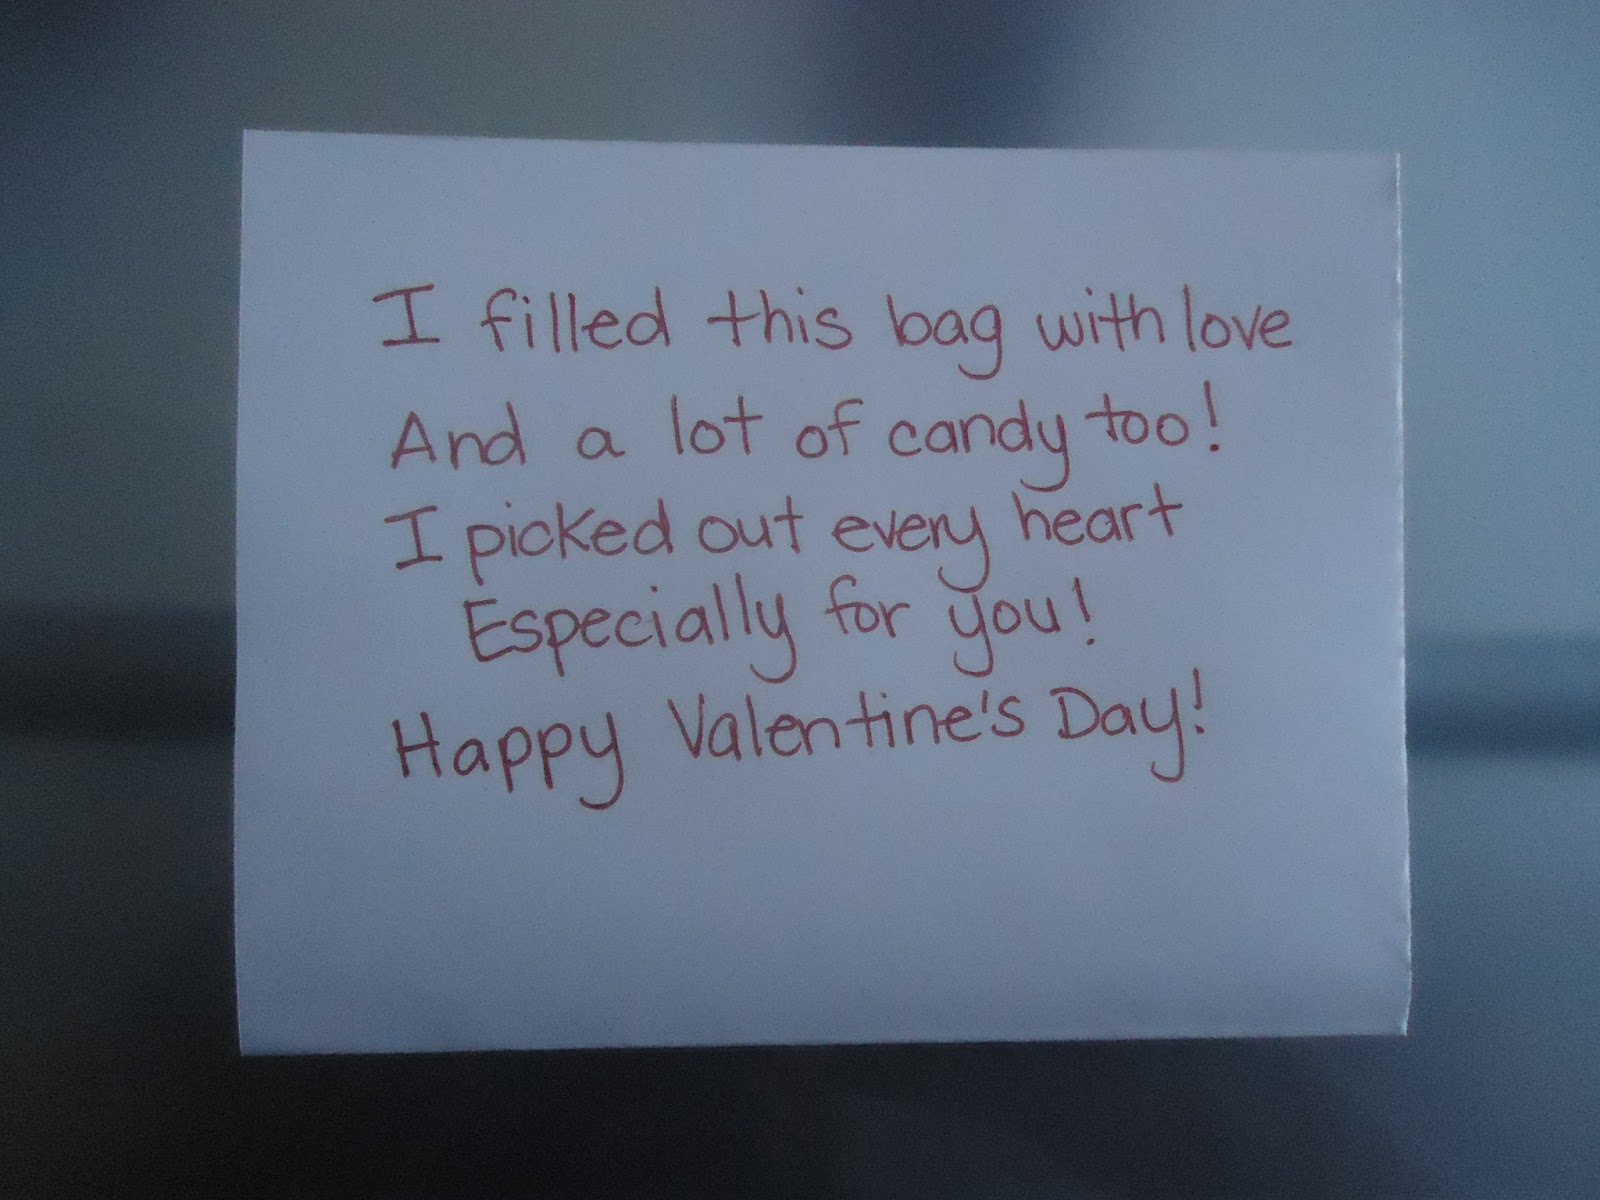 I filled this bag with love
And a lot of candy too!
I picked out every heart
Especially for you!
Happy Valentine's Day!